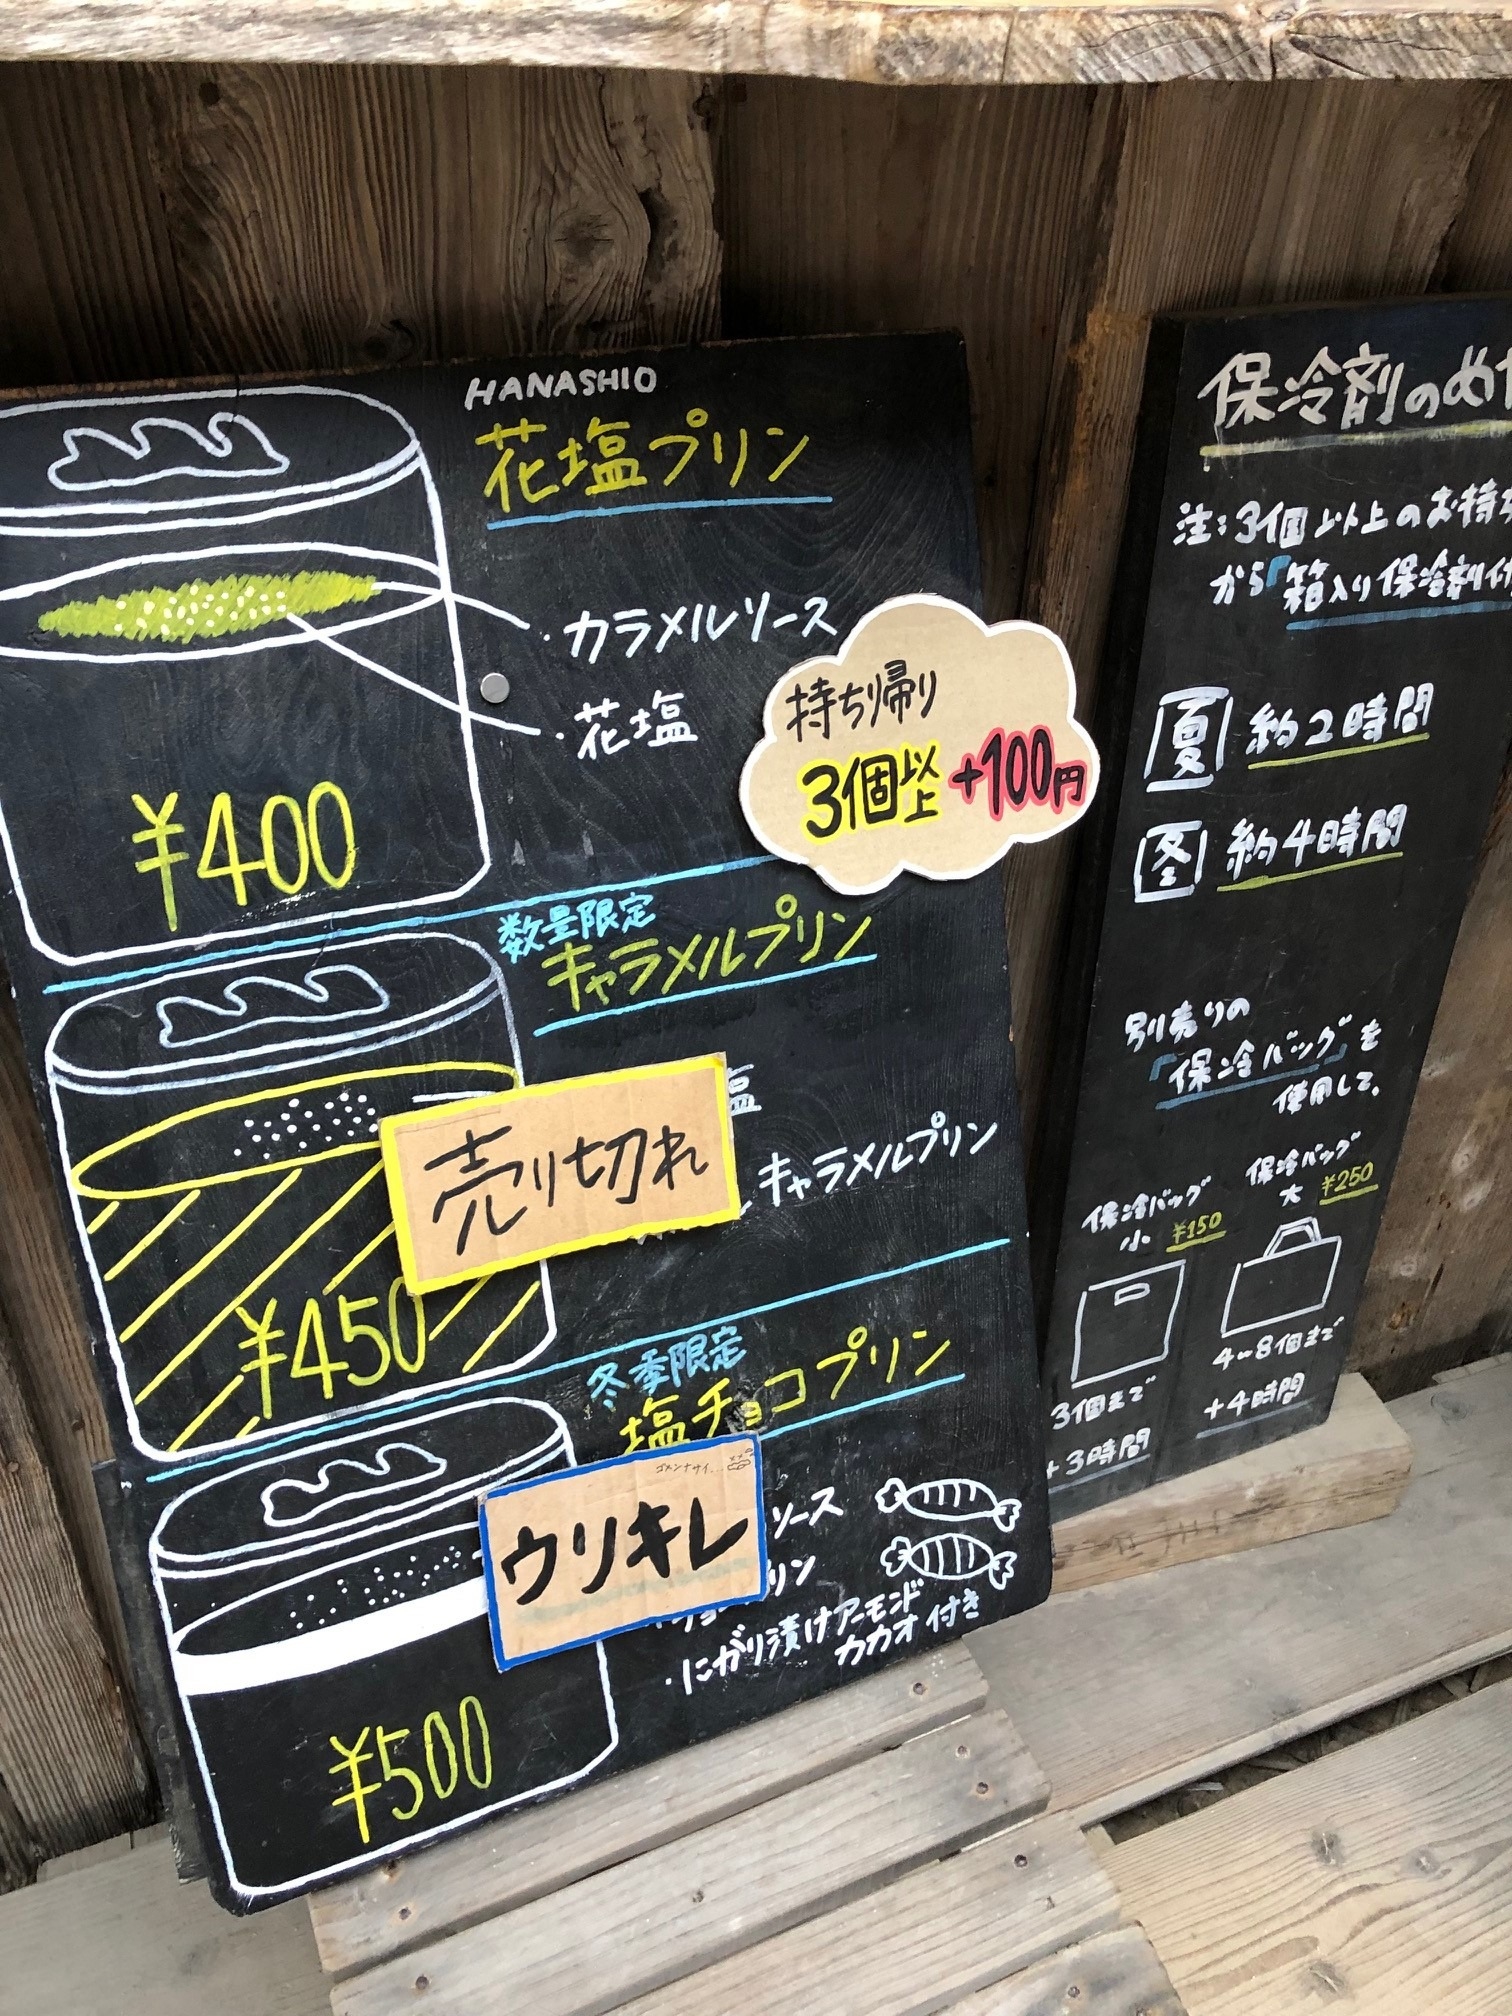 HANASHIO
花塩プリン
・カラメルソース
・花塩
¥400
持ち帰り
3個以上 +100円
数量限定
キャラメルプリン
塩
売り切れ
キャラメルプリン
¥450
冬季限定
塩チョコプリン
ゴメンナサイ...
ウリキレ
ソース
リン
・にがり漬けアーモンド
カカオ付き
¥500
保冷剤のめ
注:3個以上のお持
から『箱入り保冷剤付
夏 約2時間
冬 約4時間
別売りの
『保冷バッグ』を
使用して、
保冷バッグ
小 ¥150
3個まで
+3時間
保冷バッグ
大 ¥250
4~8個まで
+4時間